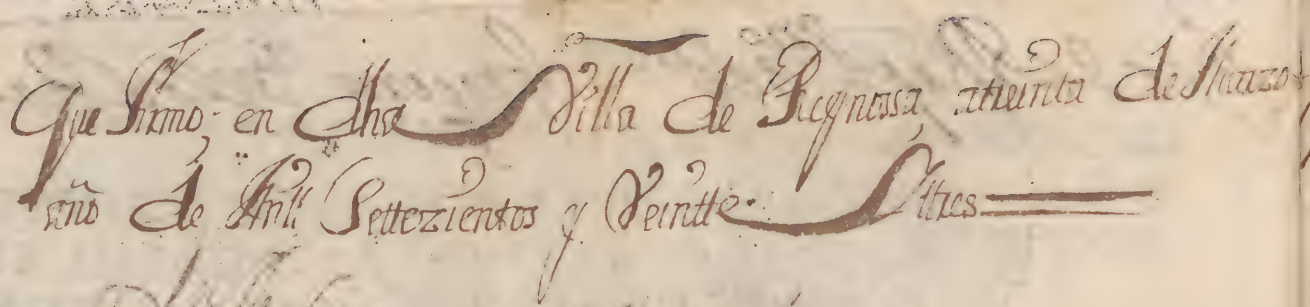 Que firmo; en dha Villa de Reynossa, atreinta de Marzo
año de Mill Settezientos y Veintte y ttres